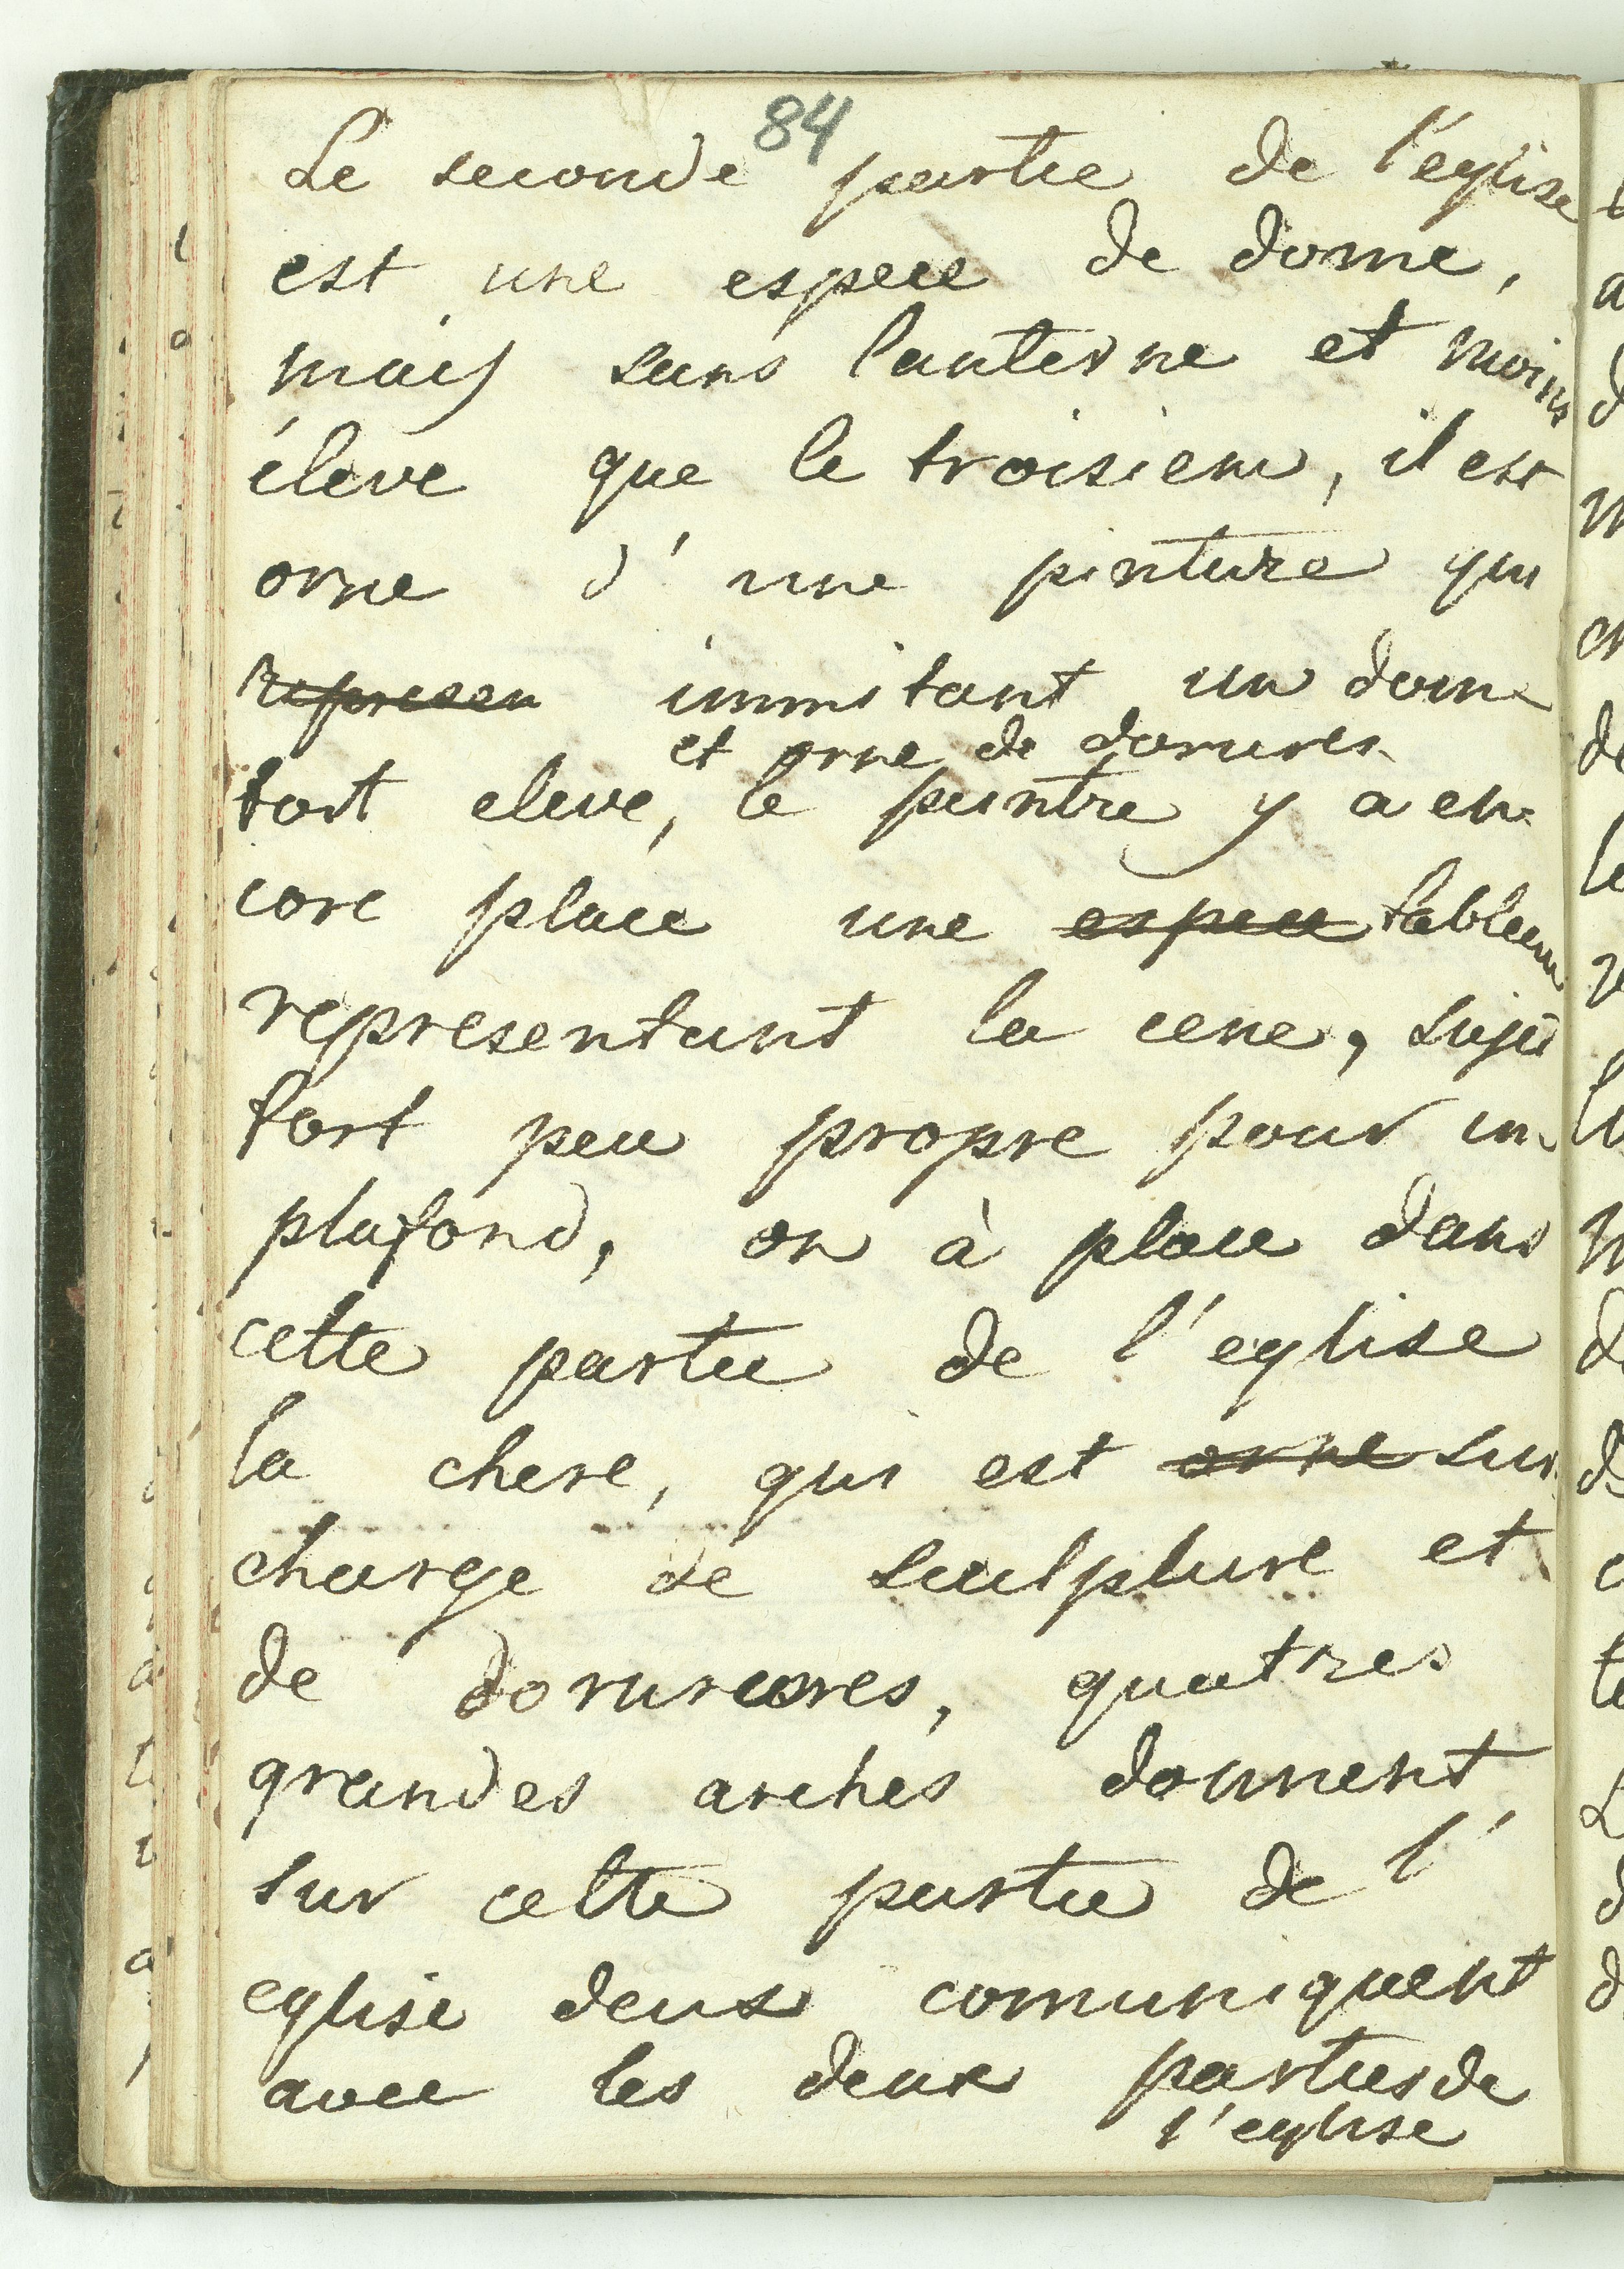 84
Le seconde partie de l'eglise
est une espece de dome,
mais sans lanterne et moins
éleve que le troisiem, il est
orne d'une pinture qui
represen immitant un dom
et orne de dorures
fort eleve, le peintre y a en
core place une espece tableau
representant la cene, suje
fort peu propre pour un
plafond, on à place dans
cette partie de l'eglise
la chere, qui est orne sur
charge de sculpture et
de dorures, quatres
grandes arches donnent
sur cette partie de l'
eglise deux comuniquent
avec les deux parties de
l'eglise